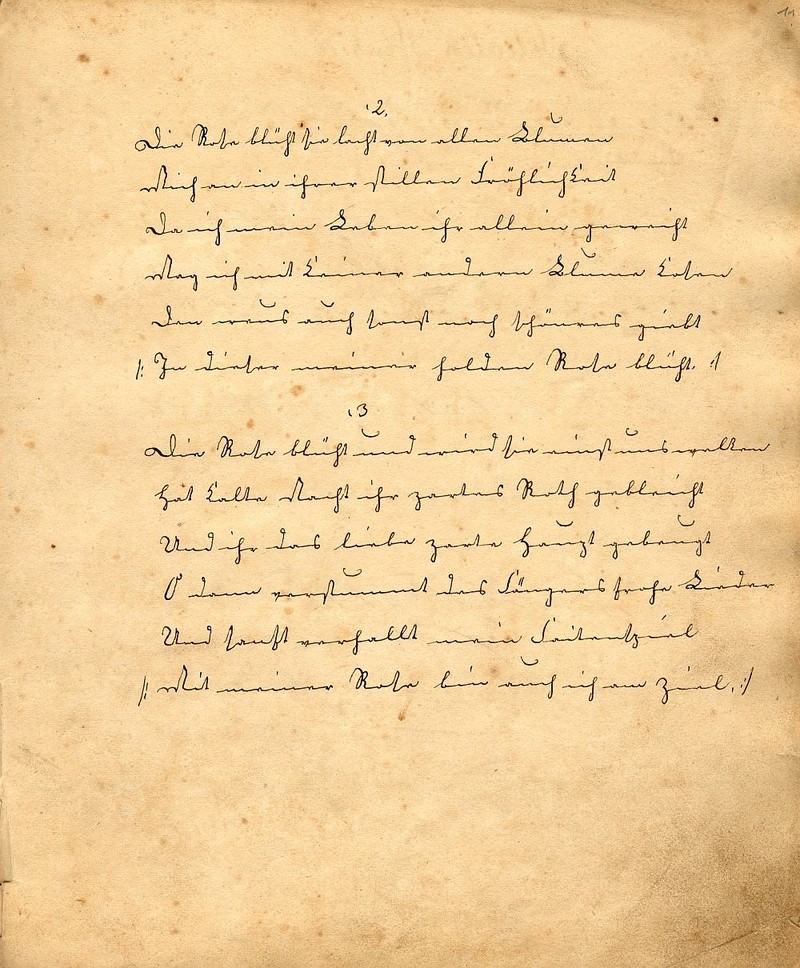 11
2.
Die Rose blüht sie lacht von allen Blumen
Mich an in ihrer stillen Fröhlichkeit
Da ich mein Leben ihr allein geweiht
Mag ich mit keiner andern Blume kosen
Den was auch sonst noch schönres giebt
/: In dieser meiner holden Rose blüht. :/
3
Die Rose blüht und wird sie einst uns welken
Hat kalte Nacht ihr zartes Roth gebleicht
Und ihr das liebe zarte Haupt gebeugt
O dann verstummt des Sängers frohe Lieder
Und sanft verhallt mein Saitenspiel
/: Mit meiner Rose bin auch ich am Ziel. :/